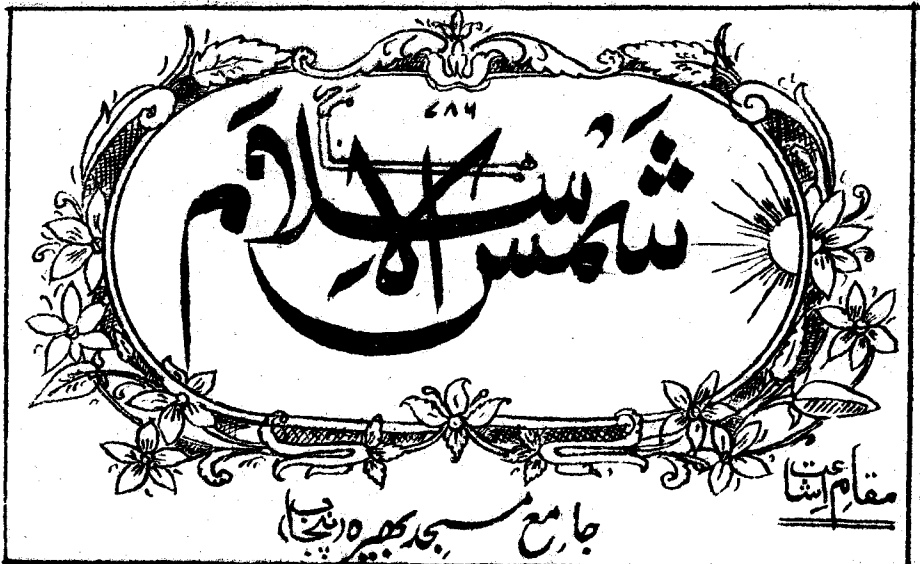 ۷۸۶
شمس الاسلام
مقامِ اشاعت
جامع مسجد بھیرہ (پنجاب)